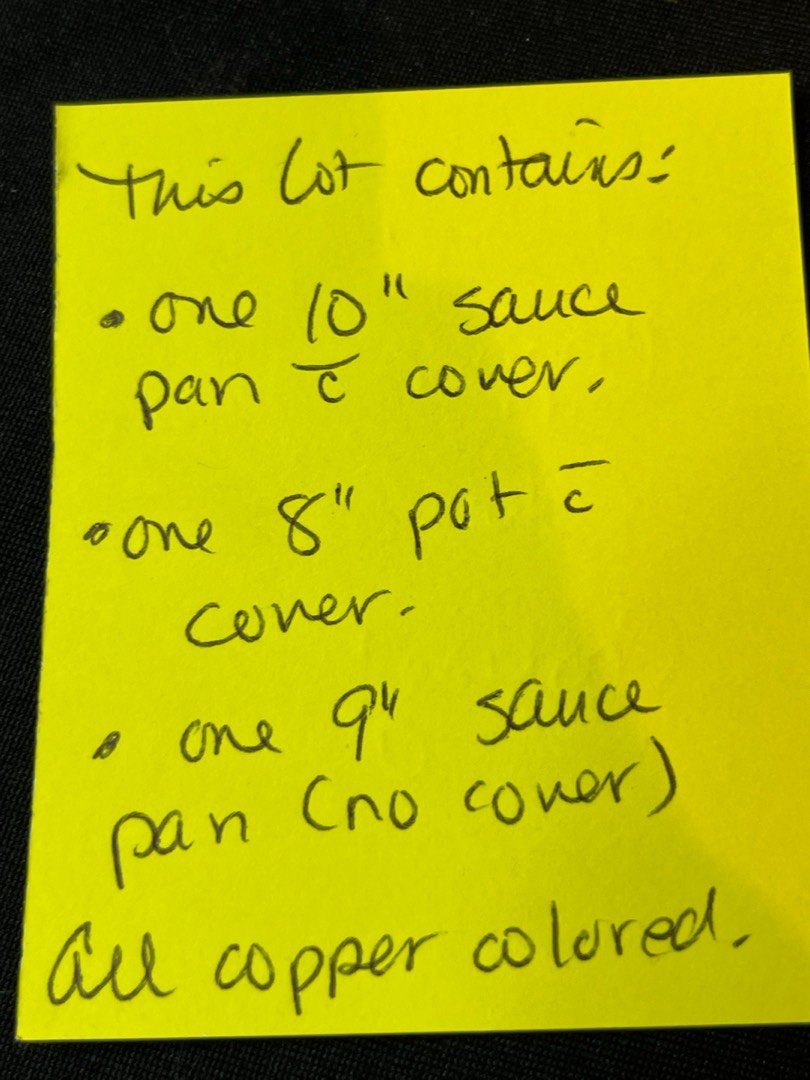 This lot contains:
• one 10" sauce
pan c̅ cover.
• one 8" pot c̅
cover.
• one 9" sauce
pan (no cover)
All copper colored.